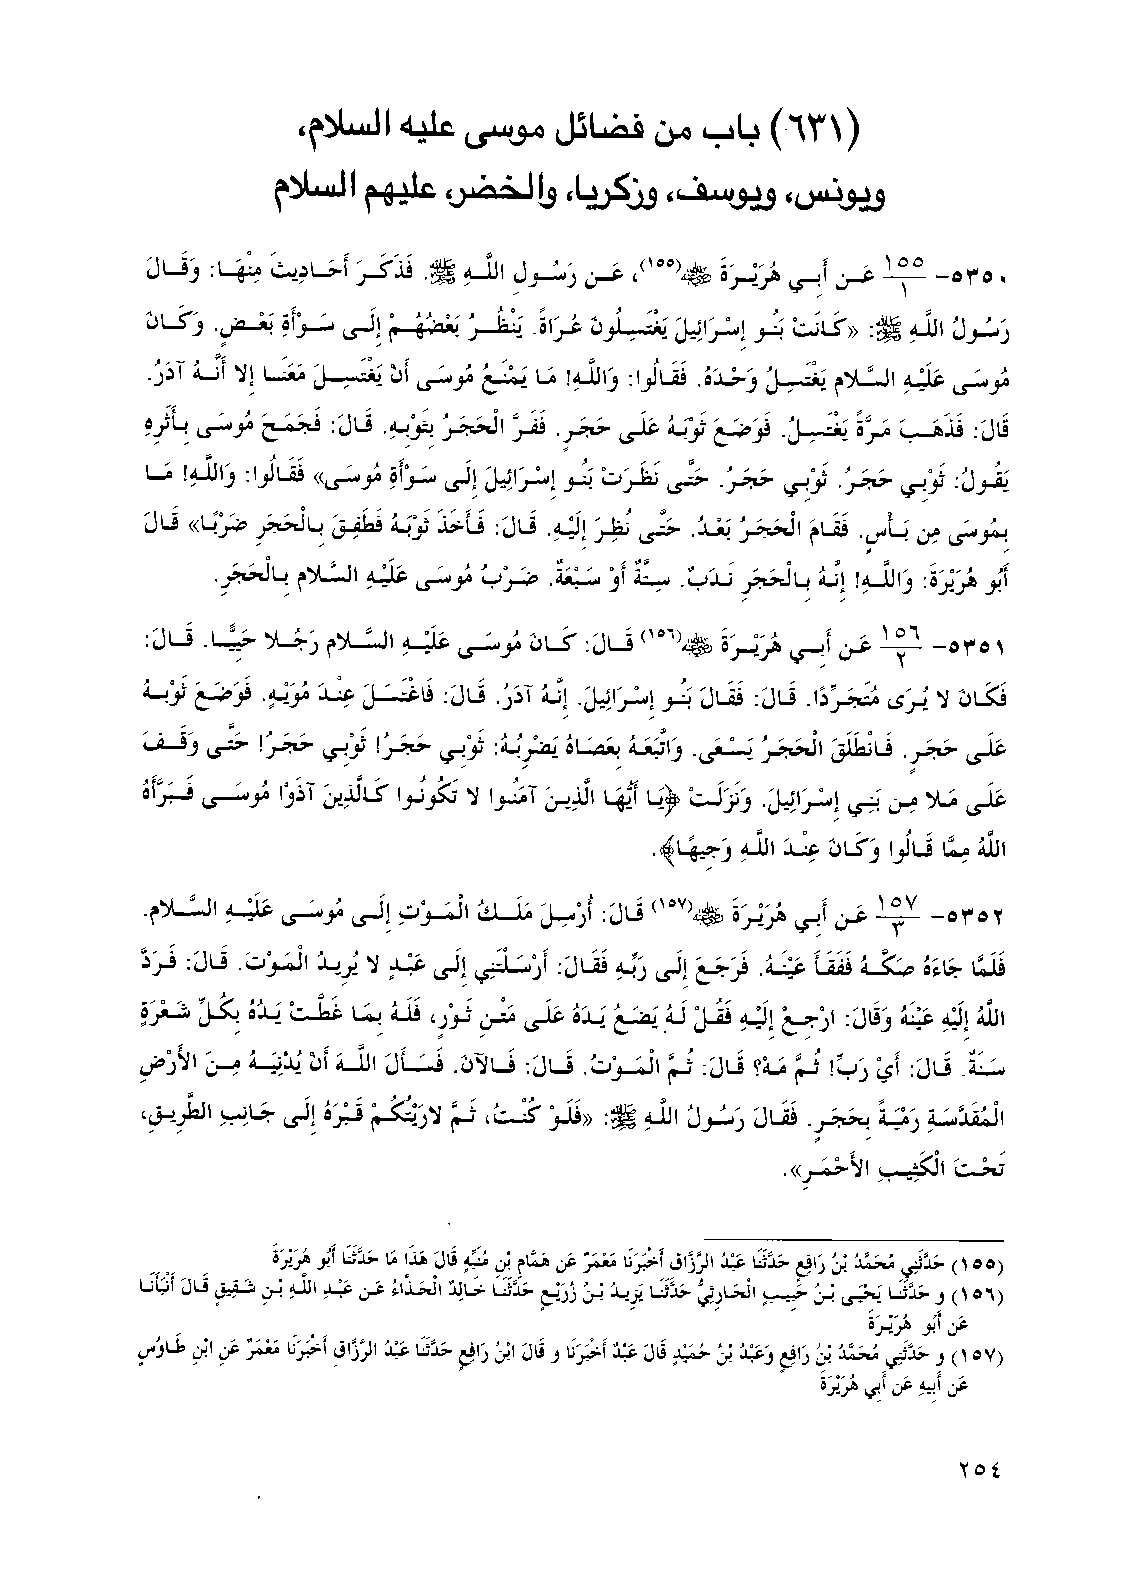 (٦٣١) باب من فضائل موسى عليه السلام،
ويونس، ويوسف، وزكريا، والخضر، عليهم السلام
٥٣٥٠- ١٥٥/١ عَن أَبِي هُرَيْرَةَ ﵁(١٥٥)، عَن رَسُول اللَّهِ ﷺ. فَذَكَرَ أَحَادِيثَ مِنْهَا: وَقَالَ
رَسُولُ اللَّهِ ﷺ: «كَانَتْ بَنُو إِسْرَائِيلَ يَغْتَسِلُونَ عُرَاةً. يَنْظُرُ بَعْضُهُمْ إِلَى سَوْأَةِ بَعْضٍ. وَكَانَ
مُوسَى عَلَيْهِ السَّلام يَغْتَسِلُ وَحْدَهُ. فَقَالُوا: وَاللَّهِ! مَا يَمْنَعُ مُوسَى أَنْ يَغْتَسِلَ مَعَنَا إِلا أَنَّهُ آدَرُ.
قَالَ: فَذَهَبَ مَرَّةً يَغْتَسِلُ. فَوَضَعَ ثَوْبَهُ عَلَى حَجَرٍ. فَفَرَّ الْحَجَرُ بِثَوْبِهِ. قَالَ: فَجَمَحَ مُوسَى بِأَثَرِهِ
يَقُولُ: ثَوْبِي حَجَرُ. ثَوْبِي حَجَرُ. حَتَّى نَظَرَتْ بَنُو إِسْرَائِيلَ إِلَى سَوْأَةِ مُوسَى» فَقَالُوا: وَاللَّهِ! مَا
بِمُوسَى مِن بَأْسٍ. فَقَامَ الْحَجَرُ بَعْدُ. حَتَّى نُظِرَ إِلَيْهِ. قَالَ: فَأَخَذَ ثَوْبَهُ فَطَفِقَ بِالْحَجَرِ ضَرْبًا» قَالَ
أَبُو هُرَيْرَةَ: وَاللَّهِ! إِنَّهُ بِالْحَجَرِ نَدَبٌ. سِتَّةٌ أَوْ سَبْعَةٌ. ضَرْبُ مُوسَى عَلَيْهِ السَّلام بِالْحَجَرِ.
٥٣٥١- ١٥٦/٢ عَن أَبِي هُرَيْرَةَ ﵁(١٥٦) قَالَ: كَانَ مُوسَى عَلَيْهِ السَّلام رَجُلا حَيِيًّا. قَالَ:
فَكَانَ لا يُرَى مُتَجَرِّدًا. قَالَ: فَقَالَ بَنُو إِسْرَائِيلَ. إِنَّهُ آدَرُ. قَالَ: فَاغْتَسَلَ عِنْدَ مُوَيْهٍ. فَوَضَعَ ثَوْبَهُ
عَلَى حَجَرٍ. فَانْطَلَقَ الْحَجَرُ يَسْعَى. وَاتَّبَعَهُ بِعَصَاهُ يَضْرِبُهُ: ثَوْبِي حَجَرُ! ثَوْبِي حَجَرُ! حَتَّى وَقَفَ
عَلَى مَلا مِن بَنِي إِسْرَائِيلَ. وَنَزَلَتْ ﴿يَا أَيُّهَا الَّذِينَ آمَنُوا لا تَكُونُوا كَالَّذِينَ آذَوْا مُوسَى فَبَرَّأَهُ
اللَّهُ مِمَّا قَالُوا وَكَانَ عِنْدَ اللَّهِ وَجِيهًا﴾.
٥٣٥٢- ١٥٧/٣ عَن أَبِي هُرَيْرَةَ ﵁(١٥٧) قَالَ: أُرْسِلَ مَلَكُ الْمَوْتِ إِلَى مُوسَى عَلَيْهِ السَّلام.
فَلَمَّا جَاءَهُ صَكَّهُ فَفَقَأَ عَيْنَهُ. فَرَجَعَ إِلَى رَبِّهِ فَقَالَ: أَرْسَلْتَنِي إِلَى عَبْدٍ لا يُرِيدُ الْمَوْتَ. قَالَ: فَرَدَّ
اللَّهُ إِلَيْهِ عَيْنَهُ وَقَالَ: ارْجِعْ إِلَيْهِ فَقُلْ لَهُ يَضَعُ يَدَهُ عَلَى مَتْنِ ثَوْرٍ، فَلَهُ بِمَا غَطَّتْ يَدُهُ بِكُلِّ شَعْرَةٍ
سَنَةٌ. قَالَ: أَيْ رَبِّ! ثُمَّ مَهْ؟ قَالَ: ثُمَّ الْمَوْتُ. قَالَ: فَالآنَ. فَسَأَلَ اللَّهَ أَنْ يُدْنِيَهُ مِنَ الأَرْضِ
الْمُقَدَّسَةِ رَمْيَةً بِحَجَرٍ. فَقَالَ رَسُولُ اللَّهِ ﷺ: «فَلَوْ كُنْتُ، ثَمَّ لارَيْتُكُمْ قَبْرَهُ إِلَى جَانِبِ الطَّرِيقِ،
تَحْتَ الْكَثِيبِ الأَحْمَرِ».
(١٥٥) حَدَّثَنِي مُحَمَّدُ بْنُ رَافِعٍ حَدَّثَنَا عَبْدُ الرَّزَّاقِ أَخْبَرَنَا مَعْمَرٌ عَن هَمَّامِ بْنِ مُنَبِّهٍ قَالَ هَذَا مَا حَدَّثَنَا أَبُو هُرَيْرَةَ
(١٥٦) و حَدَّثَنَا يَحْيَى بْنُ حَبِيبٍ الْحَارِثِيُّ حَدَّثَنَا يَزِيدُ بْنُ زُرَيْعٍ حَدَّثَنَا خَالِدٌ الْحَذَّاءُ عَن عَبْدِ اللَّهِ بْنِ شَقِيقٍ قَالَ أَنْبَأَنَا
عَن أَبُو هُرَيْرَةَ
(١٥٧) و حَدَّثَنِي مُحَمَّدُ بْنُ رَافِعٍ وَعَبْدُ بْنُ حُمَيْدٍ قَالَ عَبْدٌ أَخْبَرَنَا و قَالَ ابْنُ رَافِعٍ حَدَّثَنَا عَبْدُ الرَّزَّاقِ أَخْبَرَنَا مَعْمَرٌ عَنِ ابْنِ طَاوُسٍ
عَن أَبِيهِ عَن أَبِي هُرَيْرَةَ
٢٥٤